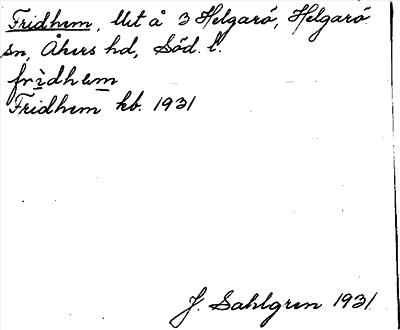 Fridhem, lht å 3 Helgarö, Helgarö
sn, Åkers hd, Söd. l.
fridhem
Fridhem kb. 1931
J. Sahlgren 1931